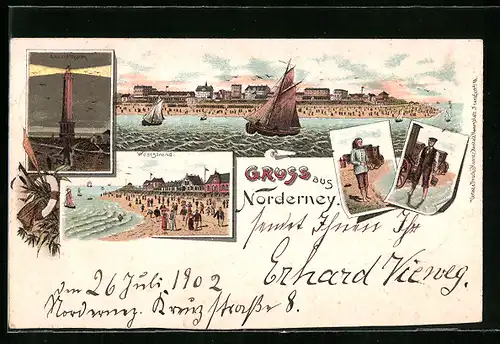 Leuchtthurm
Weststrand.
GRUSS aus
Norderney.
sendet Ihnen Ihr
Erhard Vieweg.
den 26 Juli 1902
Norderney. Kreuzstraße 8.